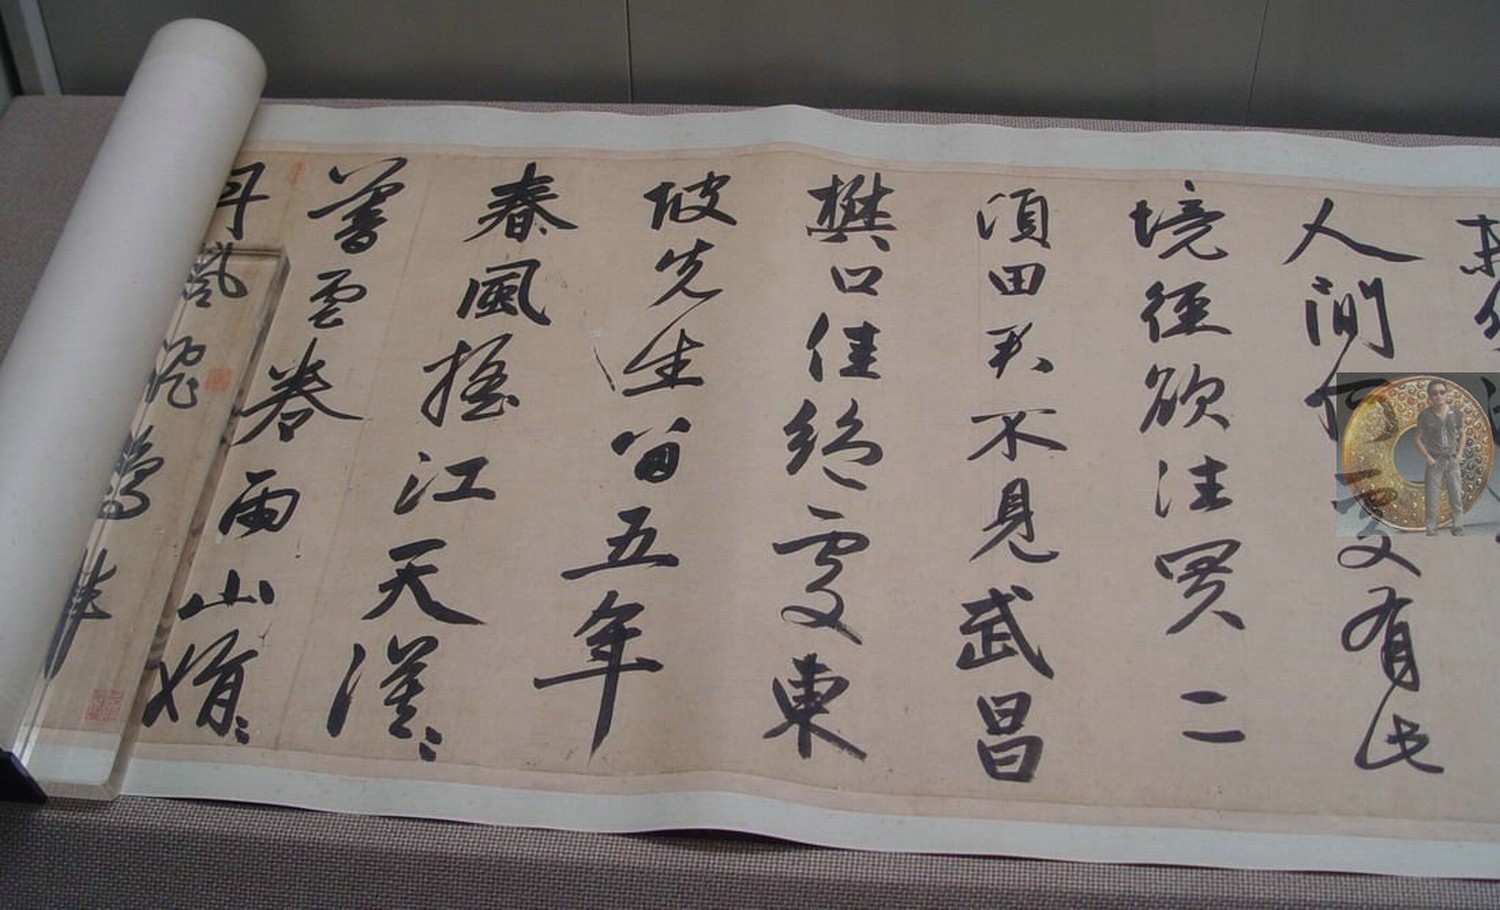 人間何處有此
境徑欲往買二
頃田君不見武昌
樊口佳絕處東
坡先生留五年
春風搖江天漠〻
暮雲卷雨山娟〻
丹楓飜鴉伴